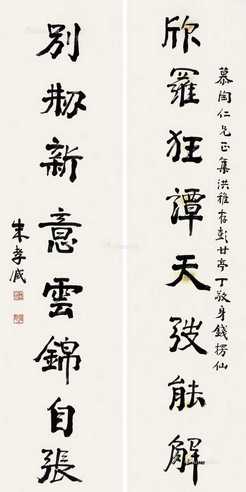 慕陶仁兄正集洪稚存彭甘亭丁敬身錢楞仙
欣羅狂譚天弢能解
別刱新意雲錦自張
朱孝臧